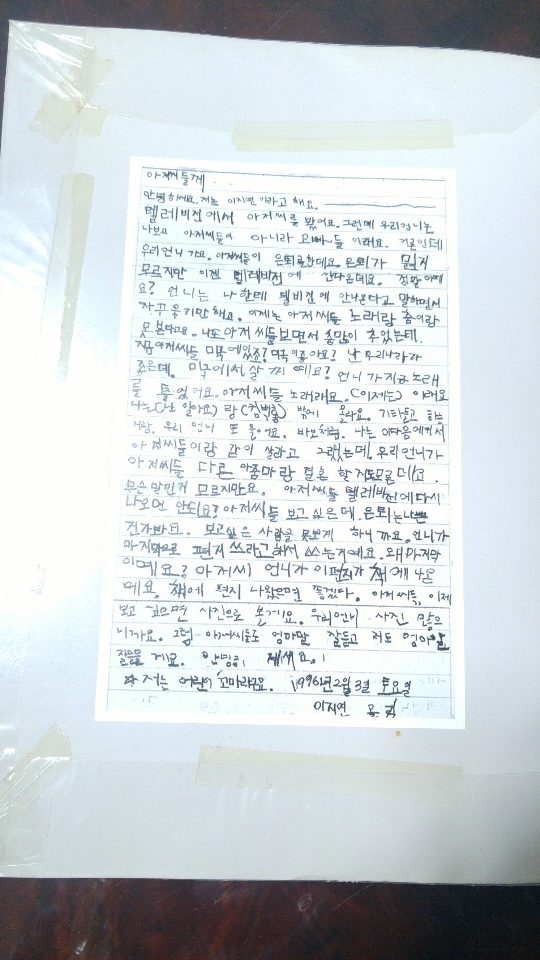 아저씨들께
안녕하세요. 저는 이지연이라고 해요.
텔레비전에서 아저씨를 봤어요. 그런데 우리언니는
나보고 아저씨들이 아니라 오빠들 이래요. 거른인데
우리언니 가요. 아저씨들이 은퇴를한데요. 은퇴가 뭔지
모르지만 이젠 텔레비전에 안나온데요. 정말이에
요? 언니는 나한테 텔비전에 안나온다고 말하면서
자꾸울기만해요. 이제는 아저씨들 노래랑 춤이랑
못본다고요. 나도 아저씨들보면서 춤많이 추었는데.
지금아저씨들 미국에있죠? 미국이좋아요? 난 우리나라가
좋은데. 미국에서 살꺼예요? 언니가지금노래
를 틀었어요. 아저씨들 노래래요. (이제는) 이래요
나는(난 알아요)랑(컴백홈) 밖에 몰라요. 기타들고 하는
사람. 우리 언니 또 울어요. 바보처럼. 나는 이다음에커서
아저씨들이랑 같이 살라고 그랬는데. 우리언니가
아저씨들 다른 아줌마랑 결혼 할지도모른데요.
무슨말인지 모르지만요. 아저씨들 텔레비전에다시
나오면 안되요? 아저씨들 보고싶은데. 은퇴는나쁜
건가봐요. 보고싶은 사람을 못보게 하니까요. 언니가
마지막으로 편지 쓰라고해서 쓰는거예요. 왜마지막
이예요? 아저씨 언니가 이편지가 책에 나온
데요. 책에 편지 나왔으면 좋겠다. 아저씨들, 이제
보고 싶으면 사진으로 볼께요. 우리언니 사진 많으
니까요. 그럼 아저씨들도 엄마말 잘듣고 저도 엄마말
잘들을께요. 안녕히 계세요.
저는 어린이 꼬마라구요. 1996년2월3일 토요일
이지연 올림